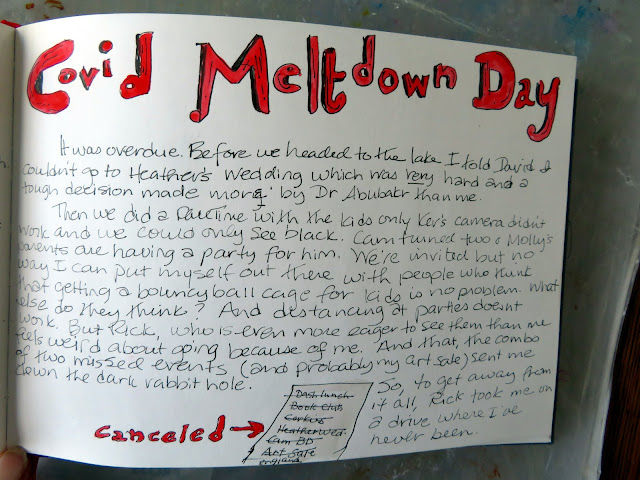 Covid Meltdown Day
It was overdue. Before we headed to the lake I told David I
couldn't go to Heather's wedding which was very hard and a
tough decision made more by Dr Abubakr than me.
Then we did a facetime with the kids only Kev's camera didn't
work and we could only see black. Cam turned two & Molly's
parents are having a party for him. We're invited but no
way I can put myself out there with people who think
that getting a bouncy ball cage for kids is no problem. What
else do they think? And distancing at parties doesn't
work. But Rick, who is even more eager to see them than me
feels weird about going because of me. And that, the combo
of two missed events (and probably my art sale) sent me
down the dark rabbit hole.
So, to get away from
it all, Rick took me on
a drive where I've
never been.
canceled →
Dash lunch
Book Club
Heather wed
Cam BD
Art Sale
england